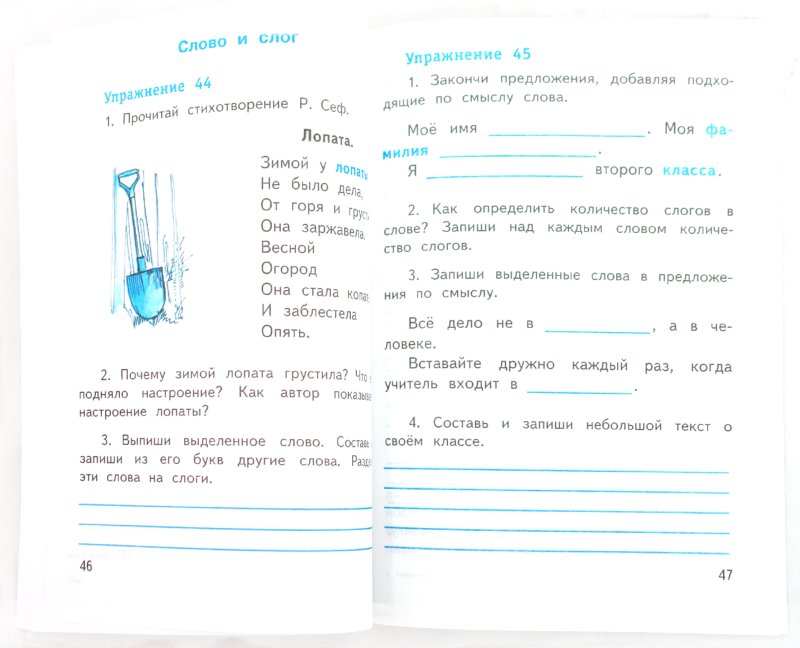 Слово и слог
Упражнение 44
1. Прочитай стихотворение Р. Сеф.
Лопата.
Зимой у лопаты
Не было дела,
От горя и
Она заржавела.
Весной
Огород
Она стала
И заблестела
Опять.
2. Почему зимой лопата грустила? Что
подняло настроение? Как автор
настроение лопаты?
3. Выпиши выделенное слово.
запиши из его букв другие слова.
эти слова на слоги.
46
Упражнение 45
1. Закончи предложения, добавляя подхо-
дящие по смыслу слова.
Моё имя . Моя фа-
милия .
Я второго класса.
2. Как определить количество слогов в
слове? Запиши над каждым словом количе-
ство слогов.
3. Запиши выделенные слова в предложе-
ния по смыслу.
Всё дело не в , а в че-
ловеке.
Вставайте дружно каждый раз, когда
учитель входит в .
4. Составь и запиши небольшой текст о
своём классе.
47